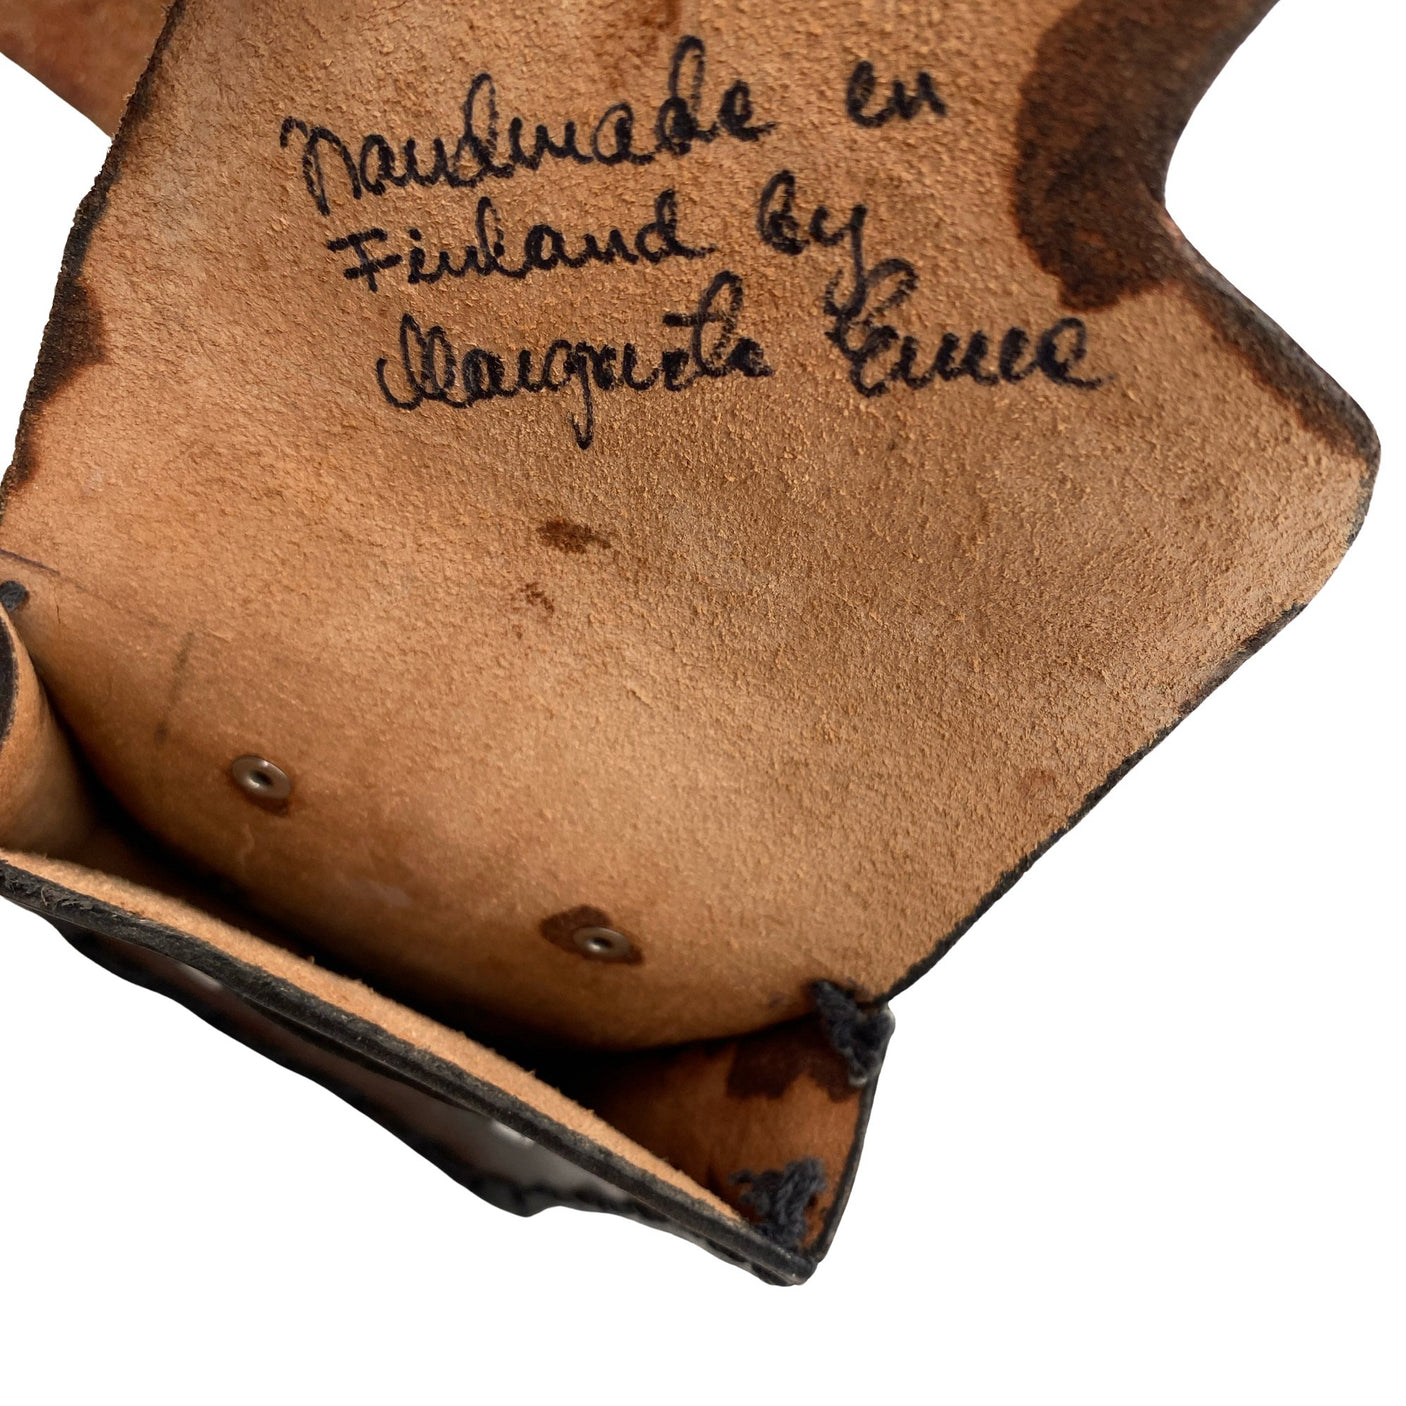 Handmade en
Finland by
Margareta